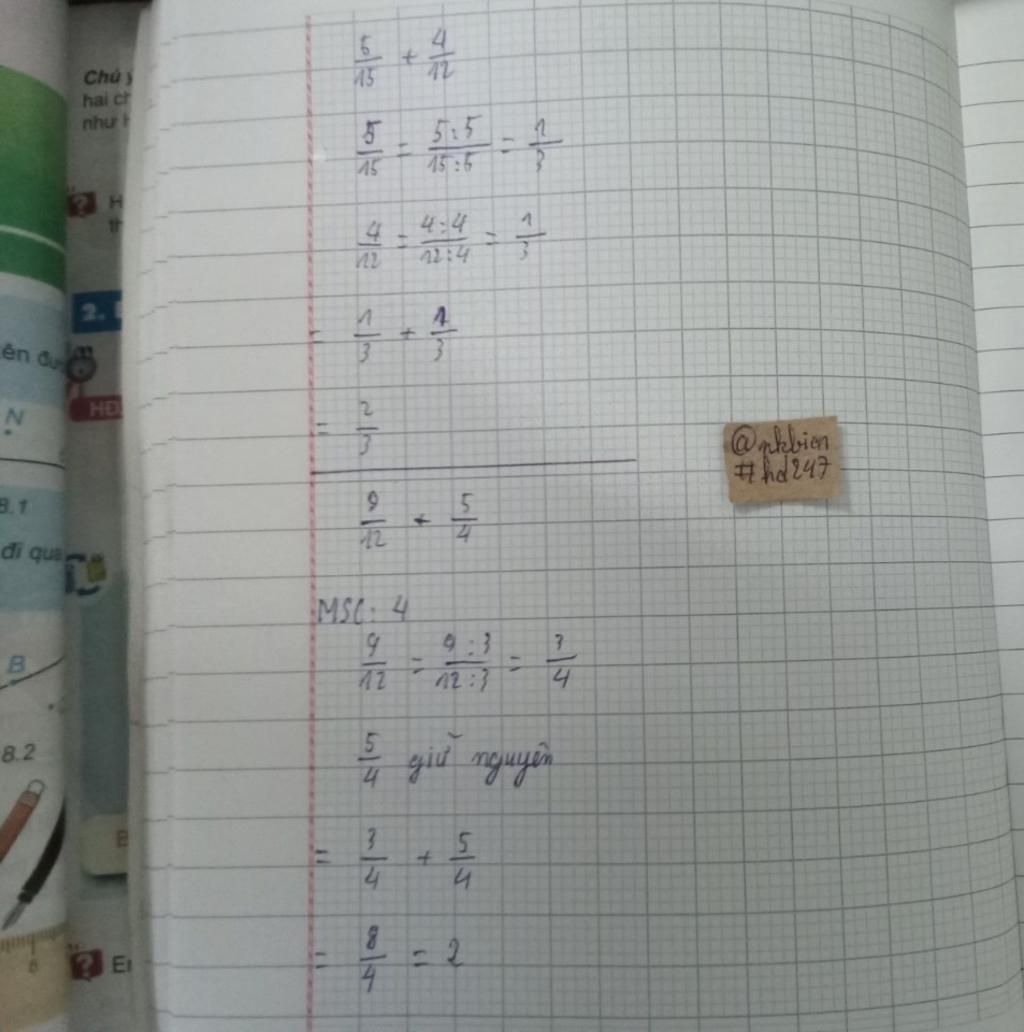 Chú ý
hai ch
như H
H
th
2.
HĐ
ên đư
N
8.1
đi qua
B
8.2
B
6
Er
5/15 + 4/12
5/15 = 5:5/15:5 = 1/3
4/12 = 4:4/12:4 = 1/3
= 1/3 + 1/3
= 2/3
9/12 + 5/4
MSC: 4
9/12 = 9:3/12:3 = 3/4
5/4 giữ nguyên
= 3/4 + 5/4
= 8/4 = 2
@nkbien
#hd247